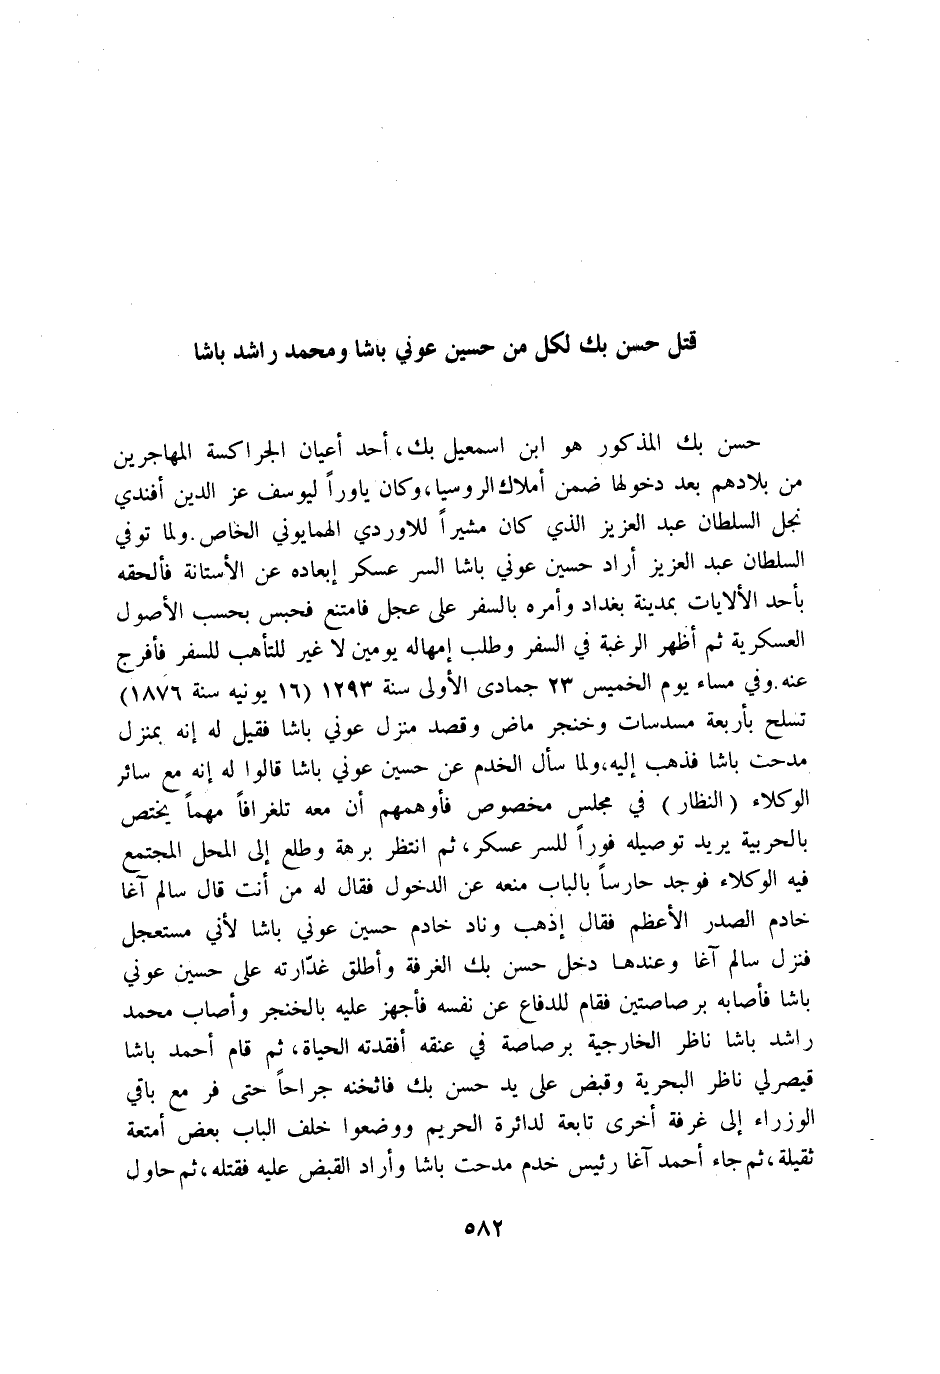 قتل حسن بك لكل من حسين عوني باشا ومحمد راشد باشا
حسن بك المذكور هو ابن اسمعيل بك، أحد أعيان الجراكسة المهاجرين
من بلادهم بعد دخولها ضمن أملاك الروسيا، وكان ياوراً ليوسف عز الدين أفندي
نجل السلطان عبد العزيز الذي كان مشيراً للاوردي الهمايوني الخاص. ولما توفي
السلطان عبد العزيز أراد حسين عوني باشا السر عسكر إبعاده عن الأستانة فألحقه
بأحد الألايات بمدينة بغداد وأمره بالسفر على عجل فامتنع فحبس بحسب الأصول
العسكرية ثم أظهر الرغبة في السفر وطلب إمهاله يومين لا غير للتأهب للسفر فأفرج
عنه. وفي مساء يوم الخميس ٢٣ جمادى الأولى سنة ١٢٩٣ (١٦ يونيه سنة ١٨٧٦)
تسلح بأربعة مسدسات وخنجر ماض وقصد منزل عوني باشا فقيل له إنه بمنزل
مدحت باشا فذهب إليه، ولما سأل الخدم عن حسين عوني باشا قالوا له إنه مع سائر
الوكلاء (النظار) في مجلس مخصوص فأوهمهم أن معه تلغرافاً مهماً يختص
بالحربية يريد توصيله فوراً للسر عسكر، ثم انتظر برهة وطلع إلى المحل المجتمع
فيه الوكلاء فوجد حارساً بالباب منعه عن الدخول فقال له من أنت قال سالم آغا
خادم الصدر الأعظم فقال إذهب وناد خادم حسين عوني باشا لأني مستعجل
فنزل سالم آغا وعندها دخل حسن بك الغرفة وأطلق غدّارته على حسين عوني
باشا فأصابه برصاصتين فقام للدفاع عن نفسه فأجهز عليه بالخنجر وأصاب محمد
راشد باشا ناظر الخارجية برصاصة في عنقه أفقدته الحياة، ثم قام أحمد باشا
قيصرلي ناظر البحرية وقبض على يد حسن بك فاثخنه جراحاً حتى فر مع باقي
الوزراء إلى غرفة أخرى تابعة لدائرة الحريم ووضعوا خلف الباب بعض أمتعة
ثقيلة، ثم جاء أحمد آغا رئيس خدم مدحت باشا وأراد القبض عليه فقتله، ثم حاول
٥٨٢